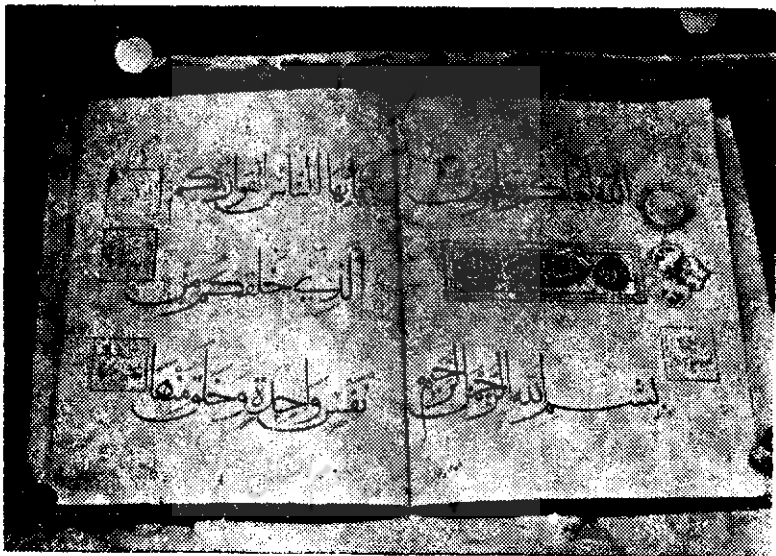 الله لعلكم تفلحون
بسم الله الرحمن الرحيم
يأيها الناس اتقوا ربكم
الذي خلقكم من
نفس واحدة وخلق منها